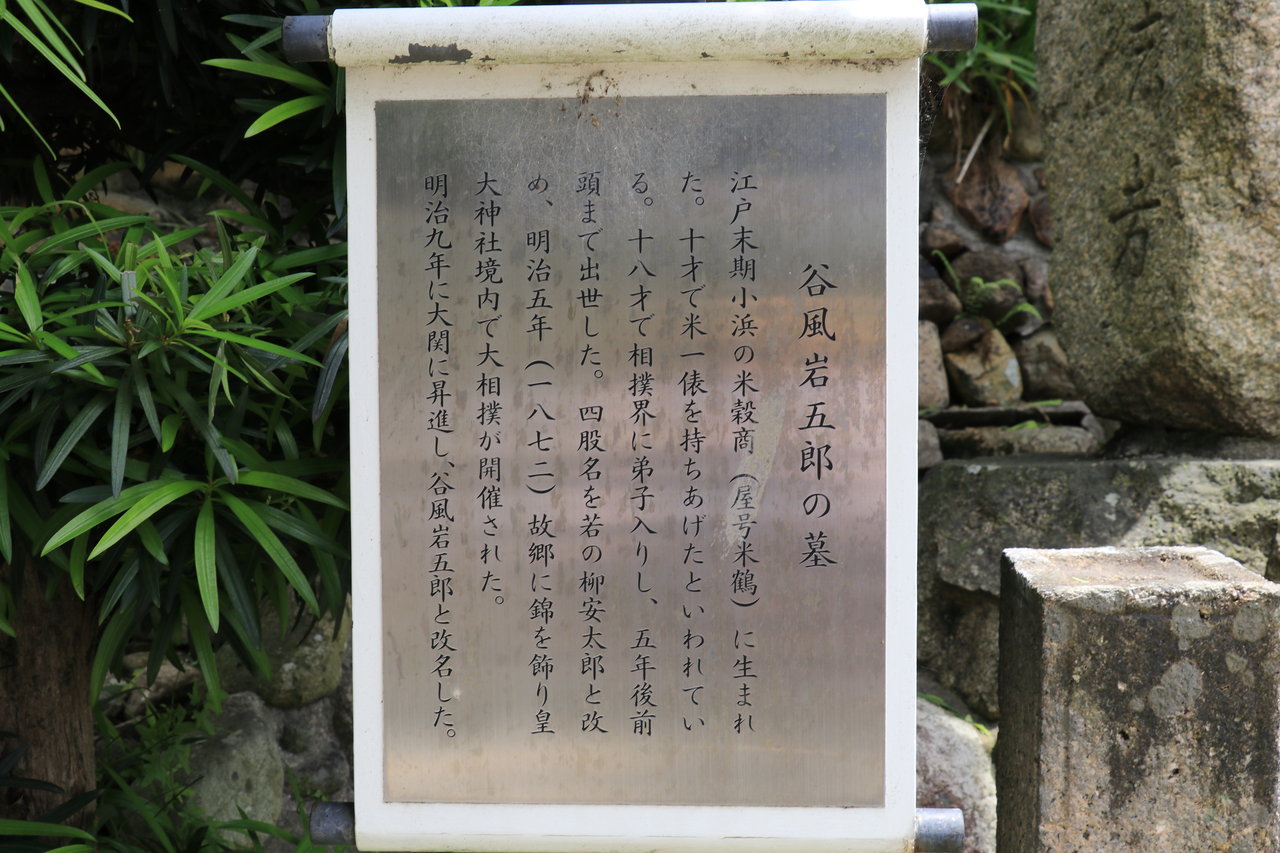 谷風岩五郎の墓
江戸末期小浜の米穀商（屋号米鶴）に生まれ
た。十才で米一俵を持ちあげたといわれてい
る。十八才で相撲界に弟子入りし、五年後前
頭まで出世した。四股名を若の柳安太郎と改
め、明治五年（一八七二）故郷に錦を飾り皇
大神社境内で大相撲が開催された。
明治九年に大関に昇進し、谷風岩五郎と改名した。